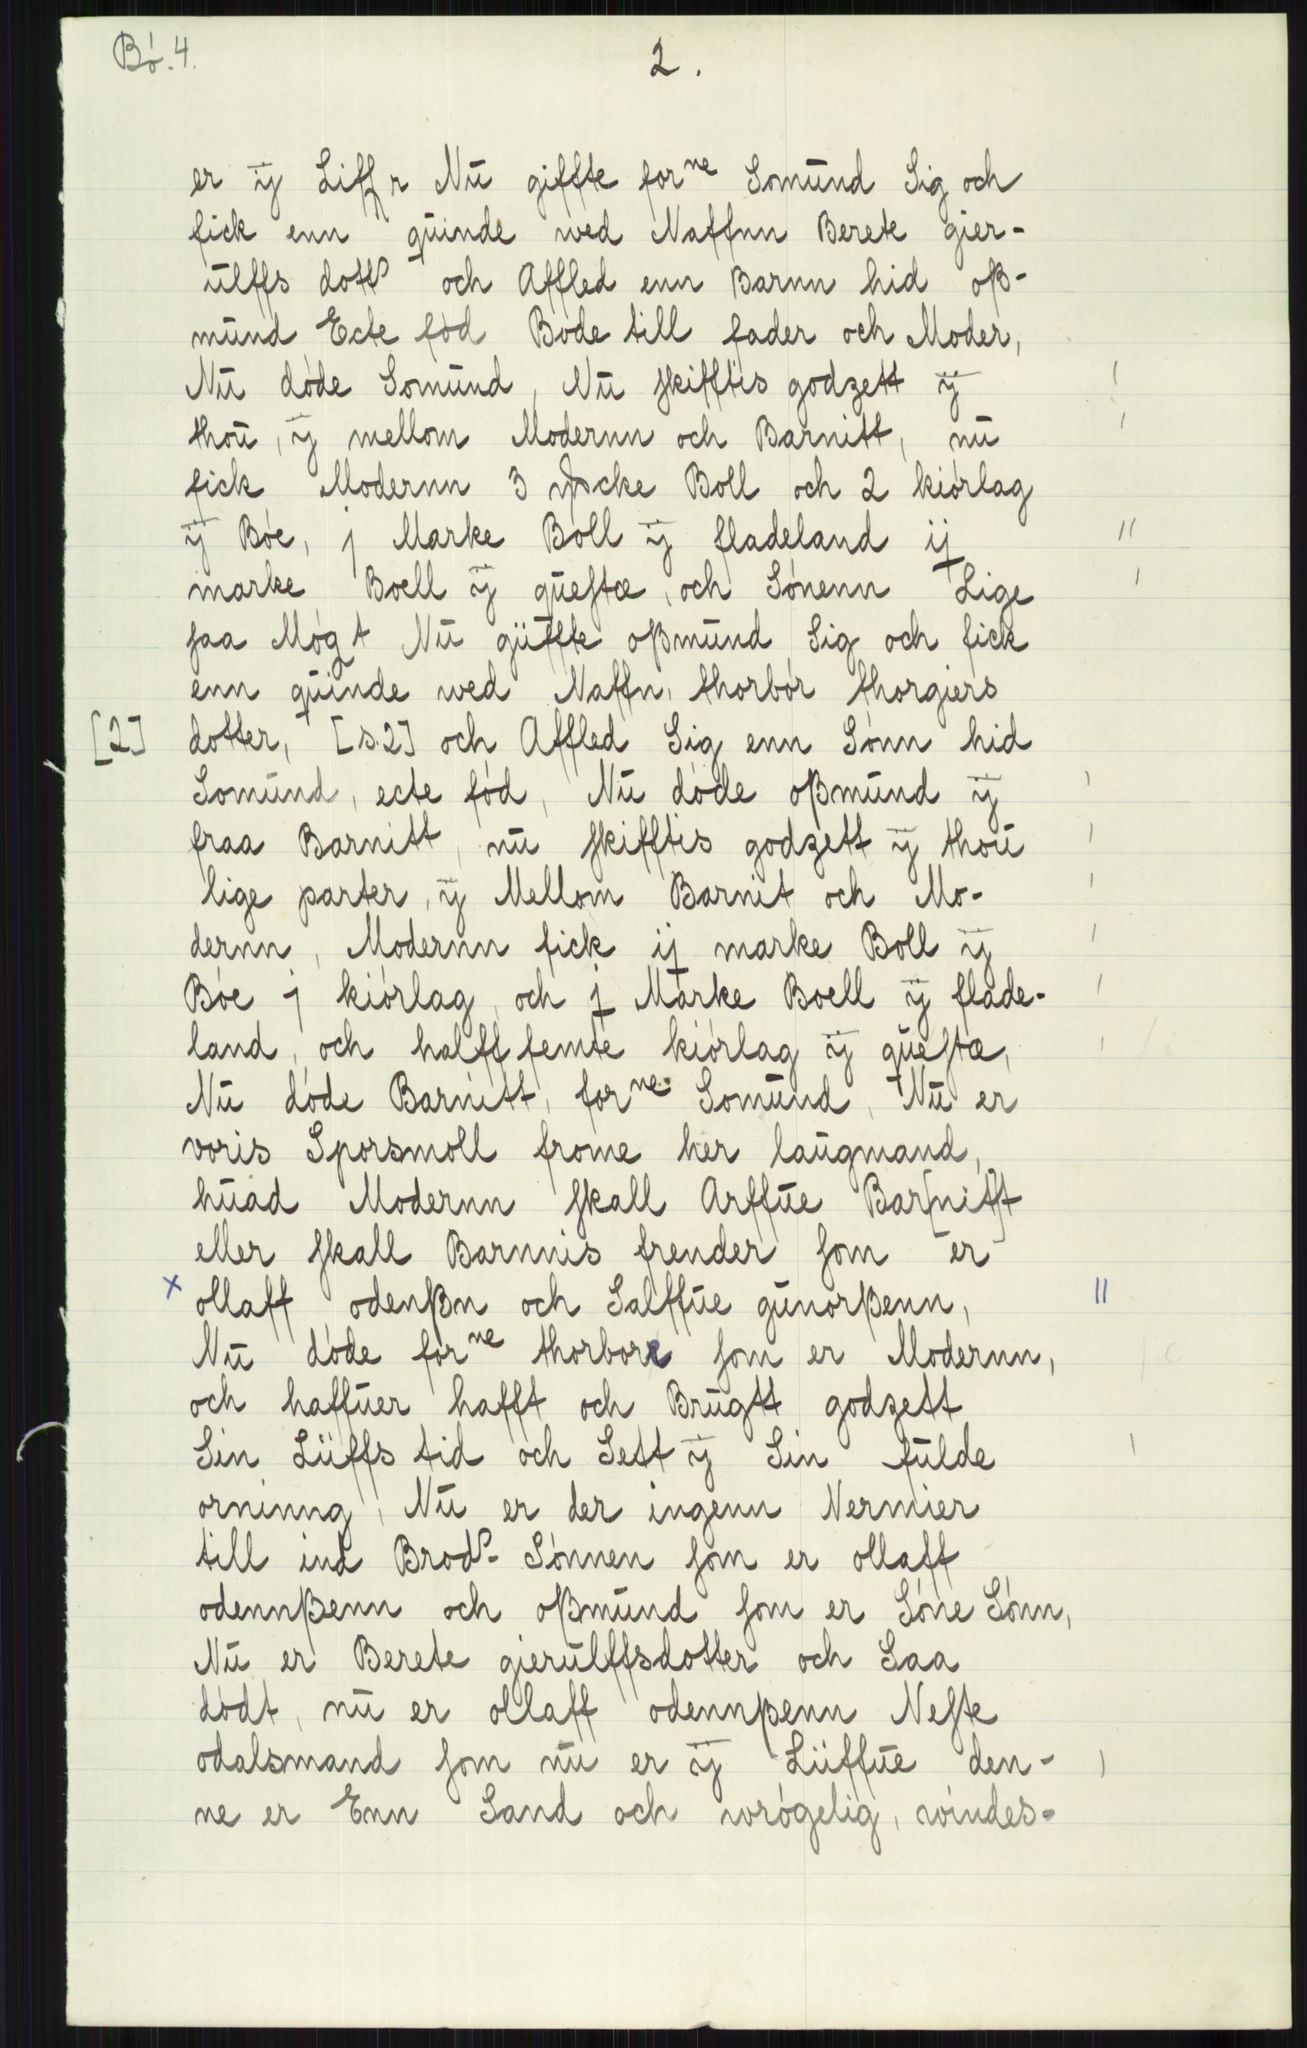 Bó. 4.
2.
er ÿ Liff r Nū giffte forⁿᵉ Somūnd Sig och
fick enn qūinde wed Naffnn Berete gier-
ūlffs dott och Affled enn Barnn hid oß-
mūnd Ecte fód Bode till fader och Moder,
Nū dóde Somūnd, Nū skifftis godzett ÿ
thoū, ÿ mellom Modernn och Barnitt, nū
fick Modernn 3 cke Boll och 2 kiórlag
ÿ Bóe, j Marke Boll ÿ fladeland ij
marke Boell ÿ qūestæ, och Sónenn Lige
saa Mógt Nū güffte oßmūnd Sig och fick
enn qūinde wed Naffn, thorbór thorgiers
[2] dotter, [s.2] och Affled Sig enn Sónn hid
Somūnd, ecte fód, Nū dóde oßmūnd ÿ
fraa Barnitt, nū skifftis godzett ÿ thoū
lige parter, ÿ Mellom Barnit och Mo-
dernn, Modernn fick ij marke Boll ÿ
Bóe j kiórlag, och j Marke Boell ÿ flade-
land, och halff femte kiórlag ÿ qūestæ,
Nū dóde Barnitt, forⁿᵉ Somūnd, Nū er
voris Sporsmoll frome her laūgmand,
hūad Modernn skall Arffūe Bar[nit]t
eller skall Barnnis frender som er
x ollaff odenßn och Salffūe gūnorßenn,
Nū dóde forⁿᵉ thorbore som er Modernn,
och haffūer hafft och Brūgtt godzett
Sin Lüffs tid och Sett ÿ Sin fūlde
orninng, Nū er der ingenn Nermier
till ind Brod- Sónnen som er ollaff
odennßenn och oßmūnd som er Sóne Sónn,
Nū er Berete gierūlffsdotter och Saa
dódt, nū er ollaff odennßenn Neste
odalsmand som nū er ÿ Lüffūe den-
ne er Enn Sand och wrógelig, windes-